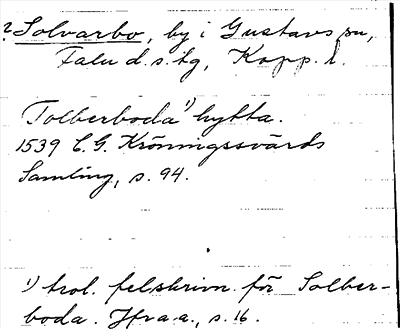 ? Solvarbo, by i Gustavs sn,
Falu d.s.tg, Kopp. l.
Tolberboda¹⁾ hytta.
1539 C. G. Kröningssvärds
Samling, s. 94.
¹⁾ trol. felskrivn. för Solber-
boda. Jfr a.a., s. 16.